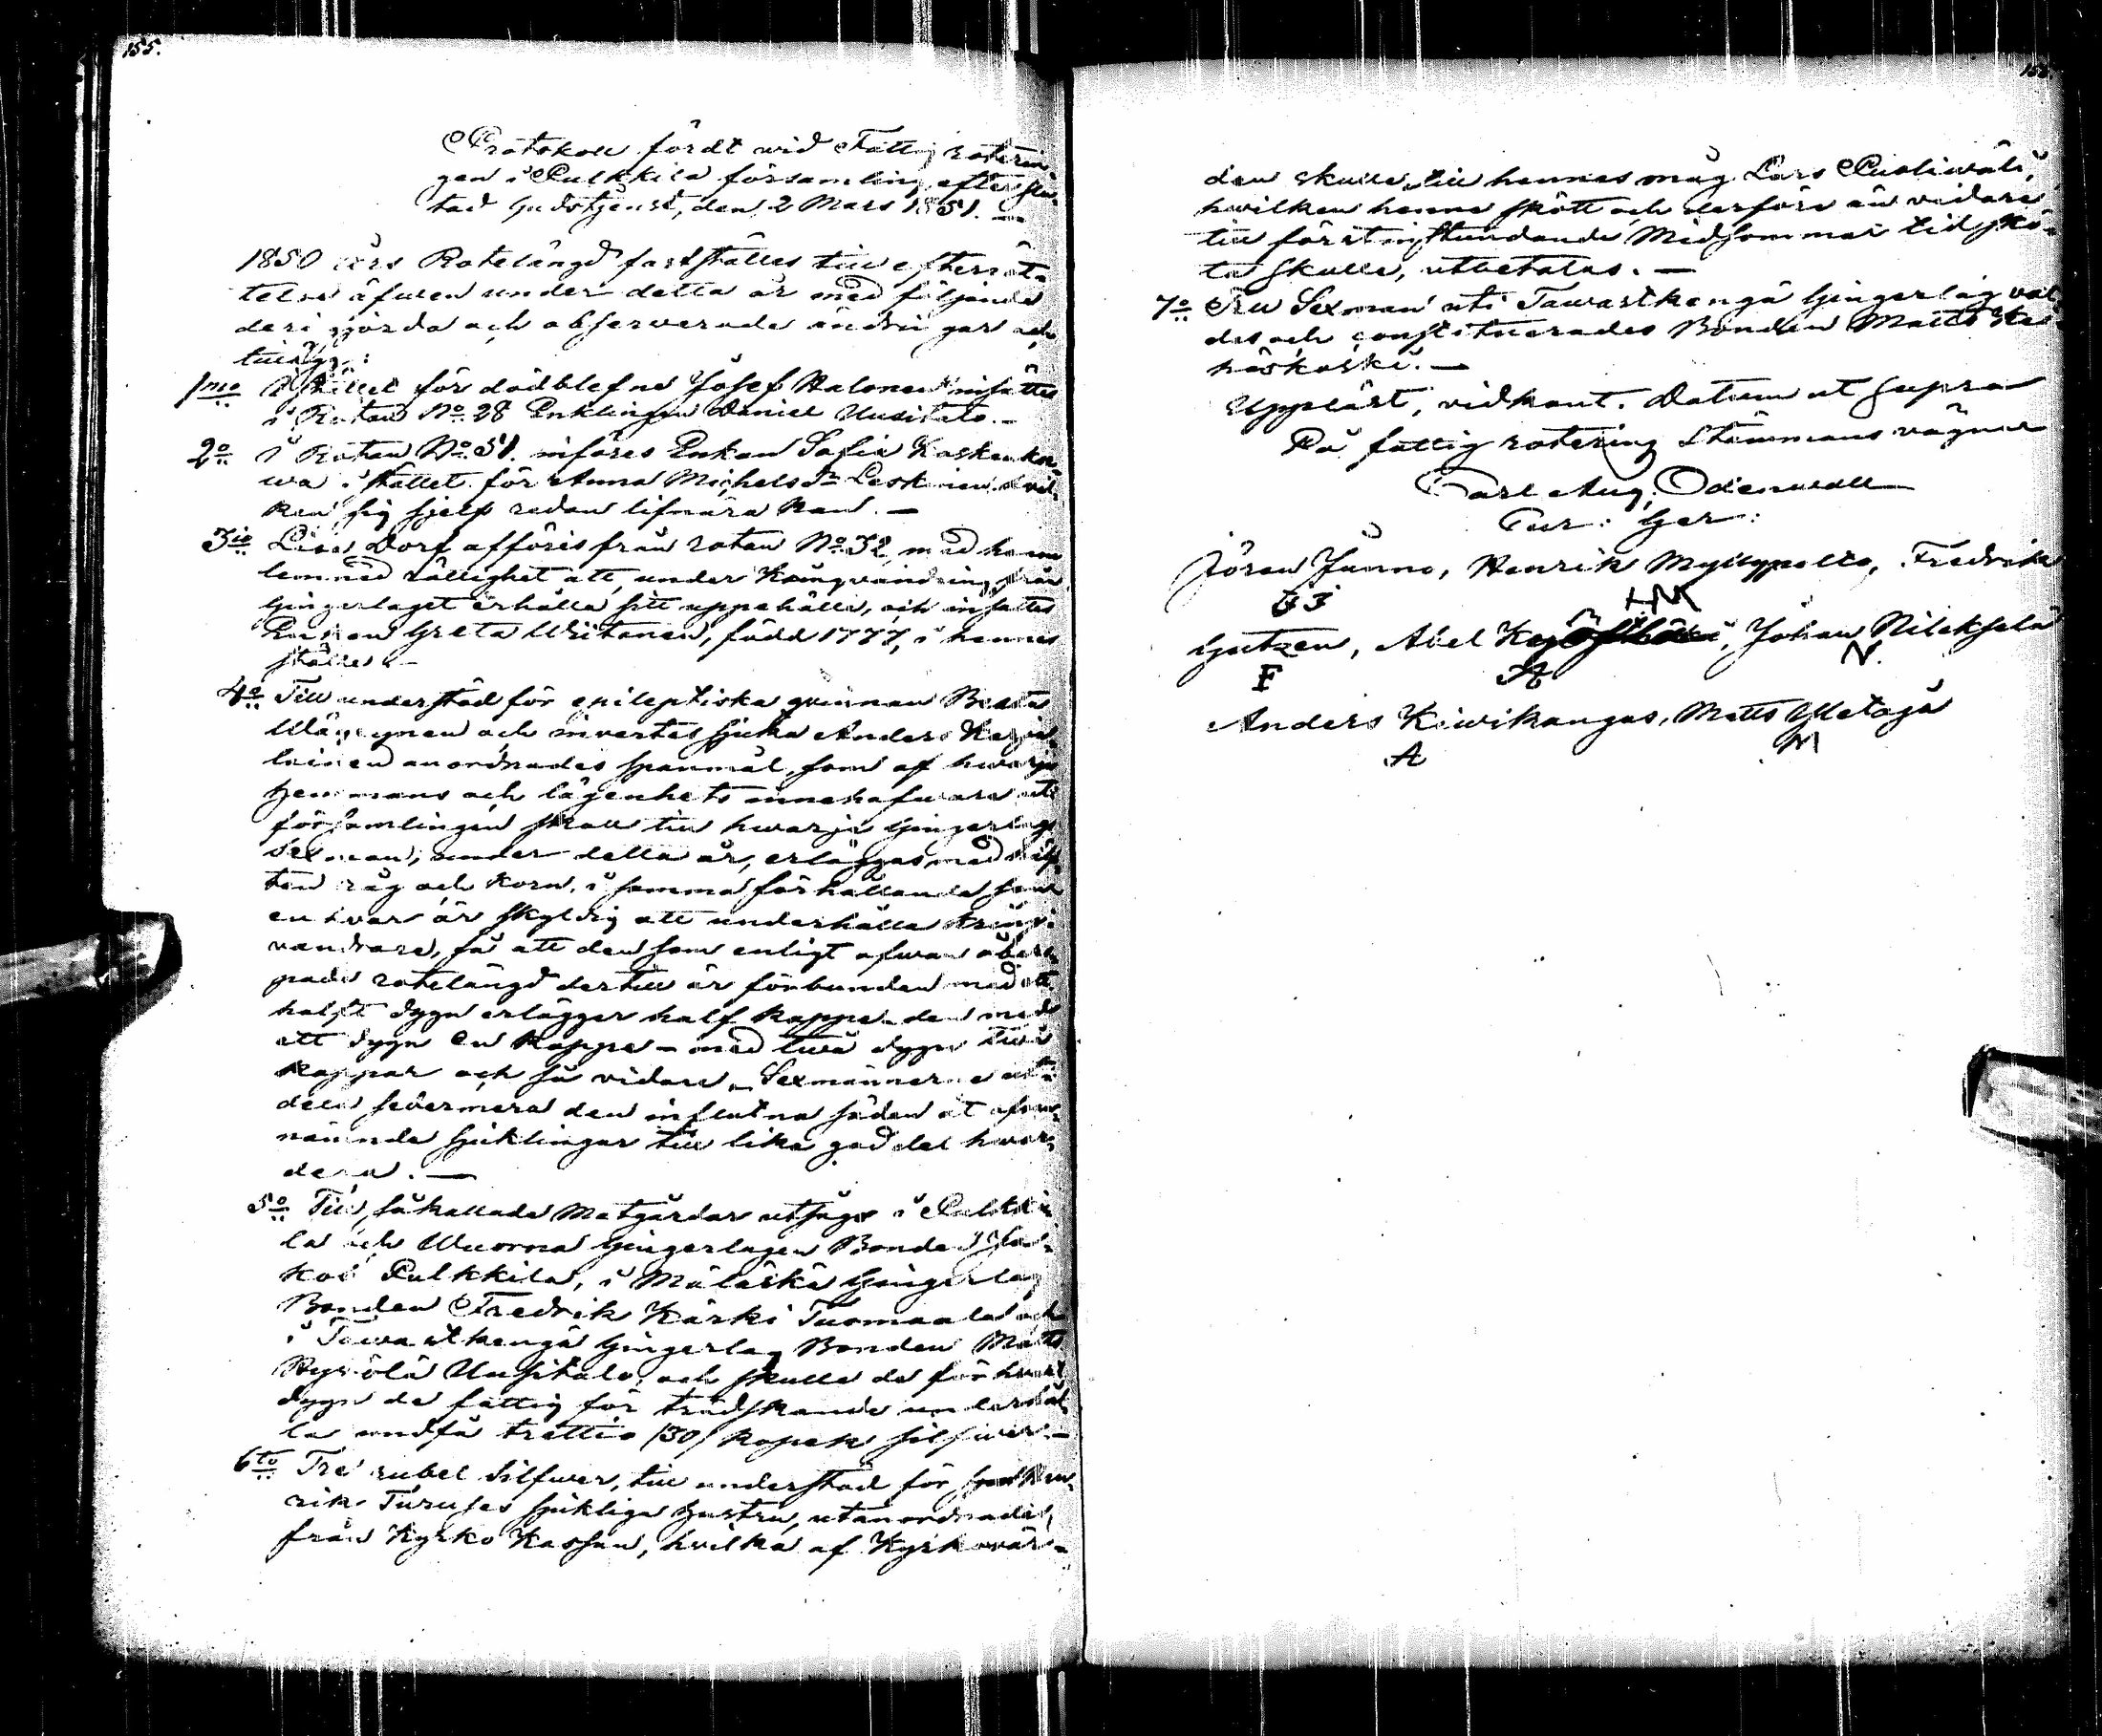 155.
Protokoll fördt wid Fattig roterin
gen i Pulkkila församling efter slu-
tad Gudstjenst, den 2 Mars 1851. —
1850 års Rotelängd fastställes till efterrät-
telse äfwen under detta år med följande
deri gjorda och observerade ändringar och
tillägg:
1mo I stället för dödblefne Josef Halonen insättes
i Rotan No 28 Enklingen Daniel Uusitalo. —
2o I Rotan No 51. införes Enkan Sofia Koskenkor-
wa i stället för Anna Michelsdr Leskinen, hvil-
ken sig sjelf redan lifnära kan. —
3io Lisa Dorf afföris från rotan No 32, med henne
lemnad rättighet att, under Kringvandring från
Gingerlaget erhålla sitt uppehälle, och insattes
Enkan Greta Writanen, född 1777, i hennes
ställe. —
4o Till understöd för epileptiska qvinnan Beata
och invertes sjuka Anders
anordnades spanmål, som af hwarje
hemmans och lägenhets innehafware uti
församlingen skall till hwarje Gingerlags
Sexman, under detta år, erläggas med hälf-
ten råg och korn, i samma förhållande som
en hvar är skyldig att underhålla kring-
vandrare, så att den som enligt ofwan åbero-
pade rotelängd dertill är förbunden med ett
halft dygn erlägger half kappe - den med
ett dygn en kappe - med twå dygn twå
kappar och så vidare. - Sexmännerne ut-
dela sedermera den influtna säden åt ofwan-
nämnde sjuklingar till lika god del hwar-
dera. —
5o Till såkallade Matgårdar utsågs i Pulkki-
la och Wuorna Gingerlagen Bonden Ja-
kob Pulkkila, i Mäläskä Gingerlag
Bonden Fredrik Kärki Tuomaala och
i Tawastkengä Gingerlag Bonden Matts
Uusitalo, och skulle de för hwart
dygn de fattig för tredskande underhål-
la undfå trettio /30/ kopek silfwer. —
6to Tre rubel Silfwer, till understöd för Hen-
rik Turuses sjukliga hustru, utanordnades
från Kyrko Kassan, hvilka af Kyrkovär-
156.
den skulle, till hennes måg Lars Puoliwäli,
hwilken henne skött och derföre än vidare
till förstinstundande Midsommar tid skö-
ta skulle, utbetalas. —
7o Till Sexman uti Tawastkengä Gingerlag val-
des och constituerades Bonden Matts Kes-
. —
Uppläst, vidkänt. Datum ut supra
På fattig rotering Stämmans vägnar
Carl Aug. Odenwall
Cur: Ger:
Jöran Junno, Henrik Myllypelto, Fredrik
HM
Gutzen, Abel, Johan Nileksela
F A
Anders Kiwikangas, Matts Yletaja
A M